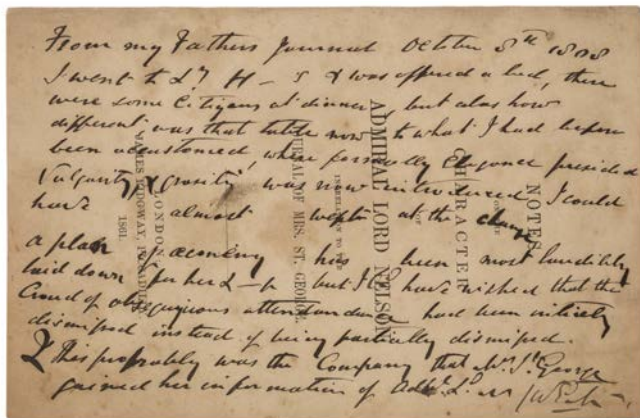 From my Fathers Journal October 8th 1808
I went to Ly H – s & was offered a bed, there
were some Citizens at dinner, but alas how
different was that table now to what I had before
been accustomed, where formerly Elegance presided
Vulgarity & grosity was now introduced I could
have almost wept at the change
a plan of oeconomy has been most laudibly
laid down for her L–p but I had have wished that the
Croud of obsequious attendance had been intirely
dismissed instead of being partially dismissed.
This probably was the Company that Mrs. St. George
gained her information of Adml. Ld.
NOTES
CHARACTER
OF
ADMIRAL LORD NELSON
IN RELATION TO THE
JOURNAL OF MRS. ST. GEORGE.
LONDON:
JAMES RIDGWAY, PICCADILLY.
1861.